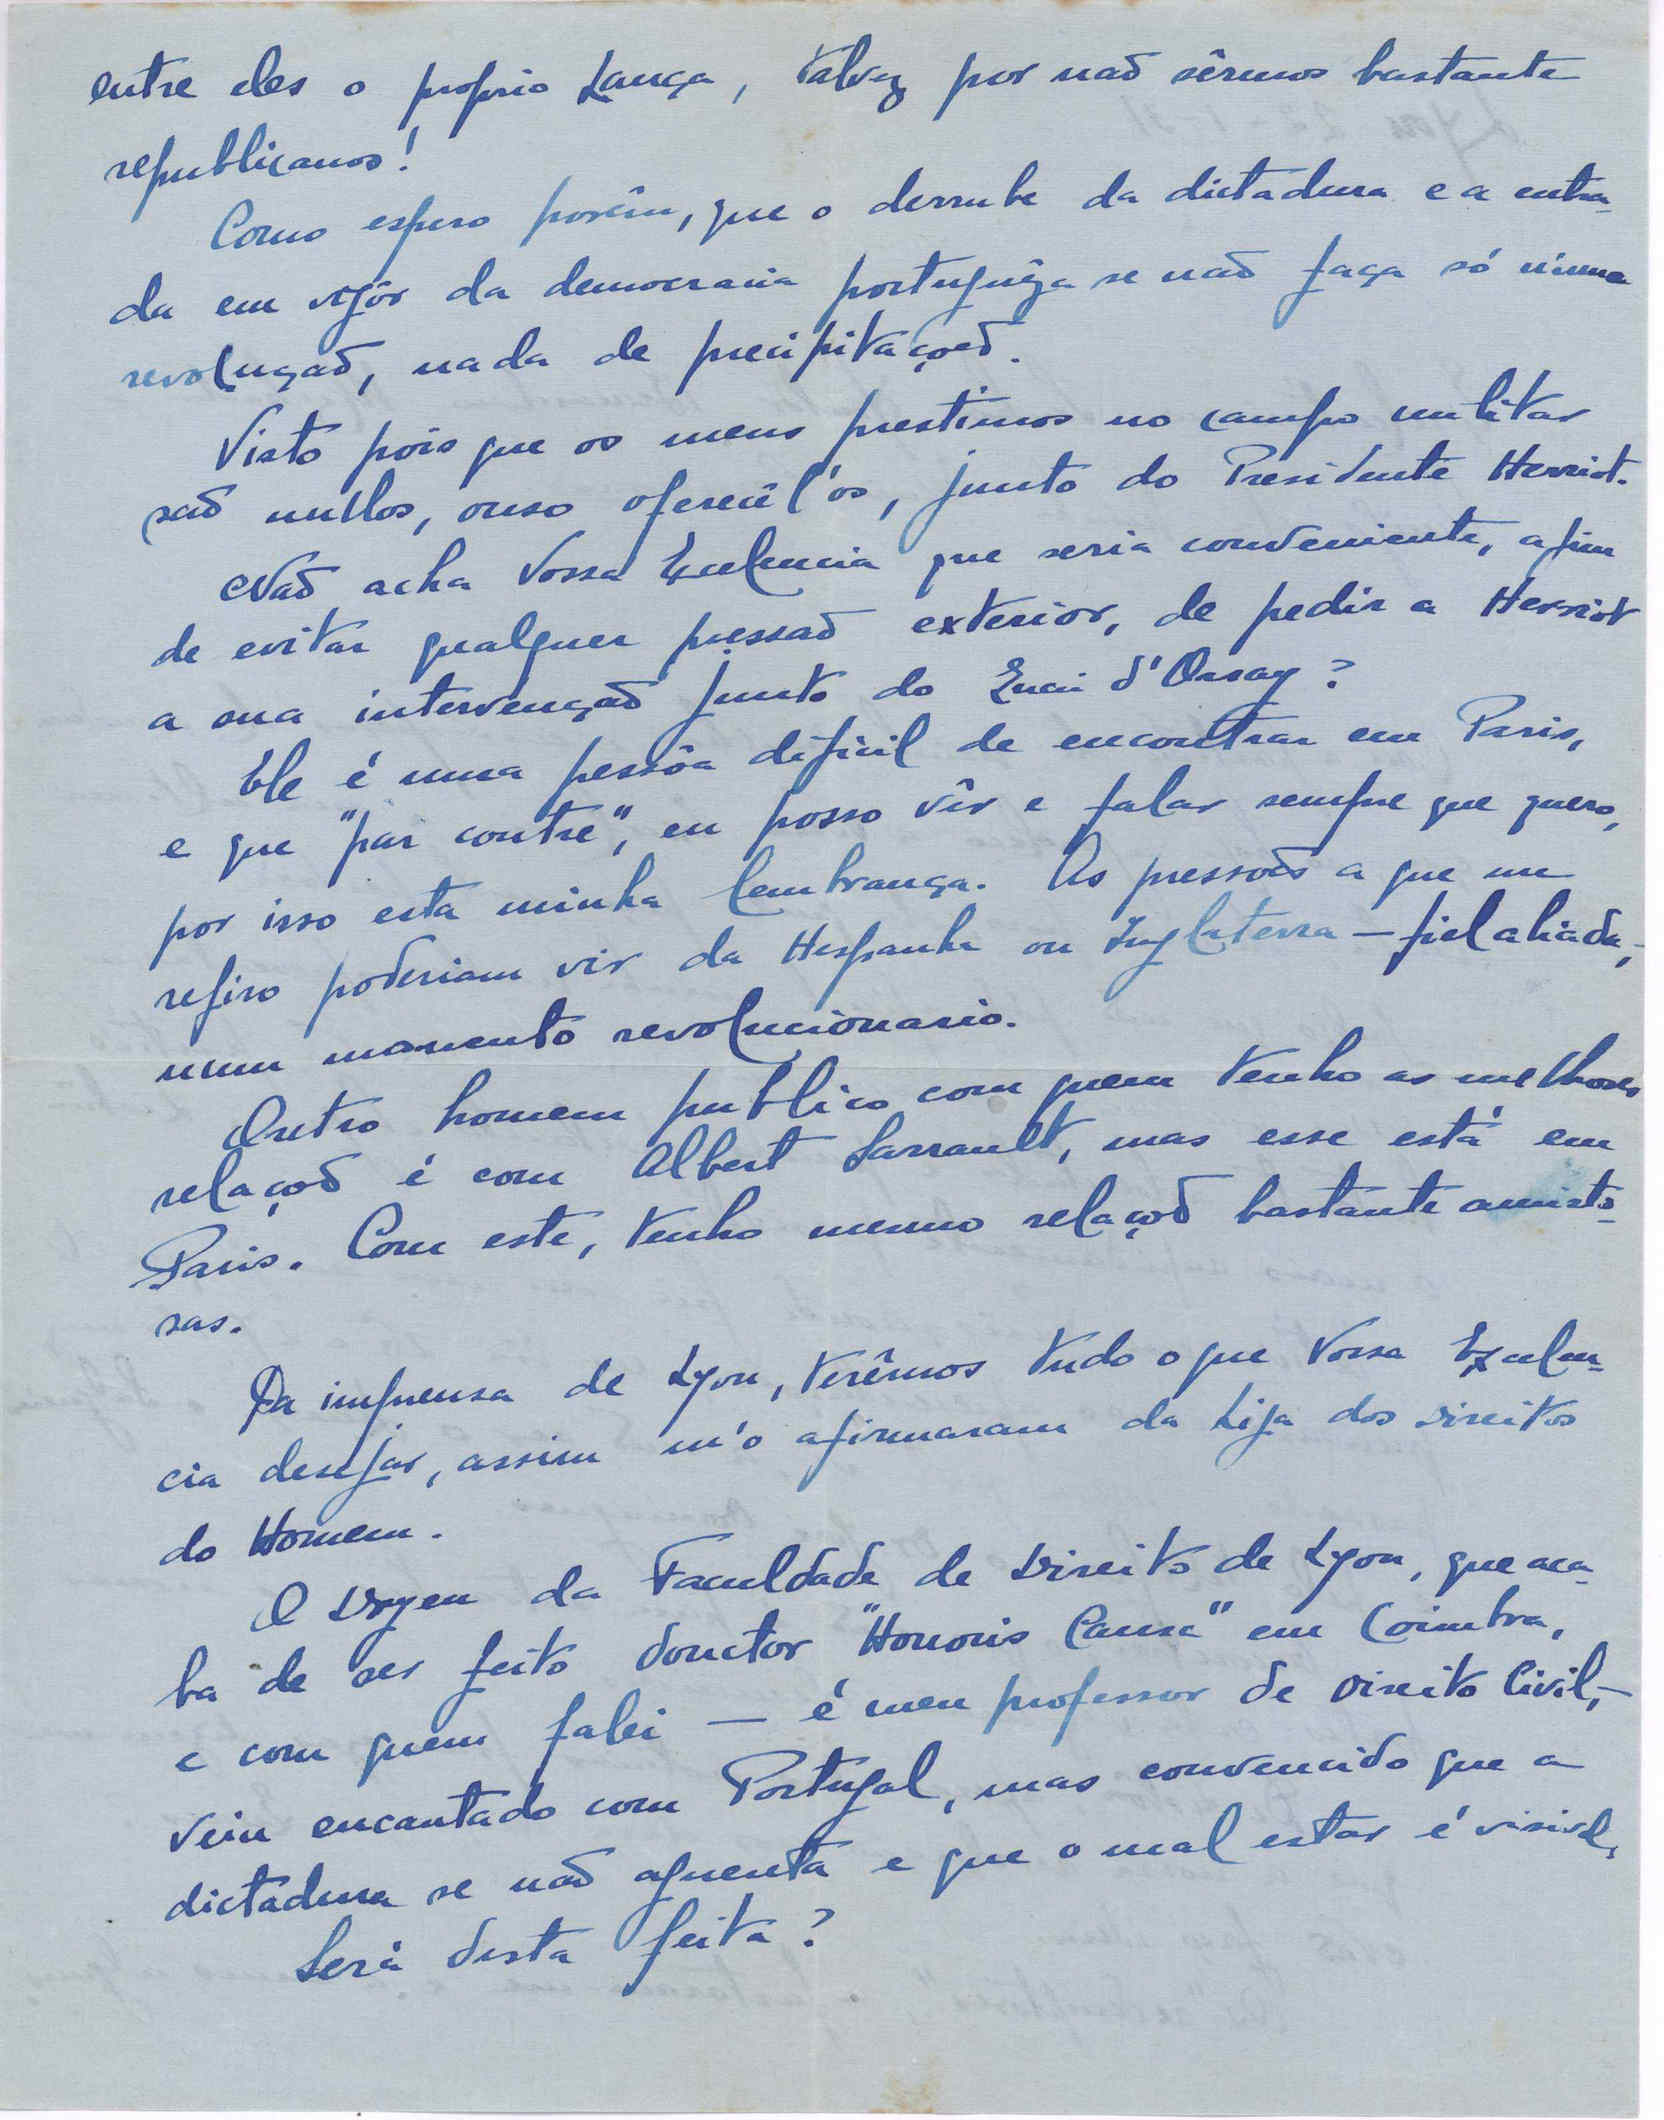 entre eles o proprio Lança, talvez por naõ sêrmos bastante
republicanos!
Como espero porêm, que o derrube da dictadura e a entra-
da em vigôr da democracia portuguêza se naõ faça só n'uma
revoluçaõ, nada de precipitaçoẽs.
Visto pois que os meus prestimos no campo militar
saõ nullos, ouso oferecêl'os, junto do Presidente Herriot.
Naõ acha Vossa Excelencia que seria conveniente, afim
de evitar qualquer pressaõ exterior, de pedir a Herriot
a sua intervençaõ junto do Quai d'Orsay?
Ele é uma pessôa dificil de encontrar em Paris,
e que "par contre", eu posso vêr e falar sempre que quero,
por isso esta minha lembrança. As pressoẽs a que me
refiro poderiam vir da Hespanha ou Inglaterra — fiel aliada, -
num momento revolucionario.
Outro homem publico com quem tenho as melhores
relaçoẽs é com Albert Sarrault, mas esse está em
Paris. Com este, tenho mesmo relaçoẽs bastante amisto-
sas.
Da imprensa de Lyon, terêmos tudo o que Vossa Excelen-
cia desejar, assim m'o afirmaram da Liga dos Direitos
do Homem.
O Doyen da Faculdade de Direito de Lyon, que aca-
ba de ser feito douctor "Honoris Causa" em Coimbra,
e com quem falei — é meu professor de Direito Civil, -
veiu encantado com Portugal, mas convencido que a
dictadura se naõ aguenta e que o mal estar é visivel,
Será desta feita?